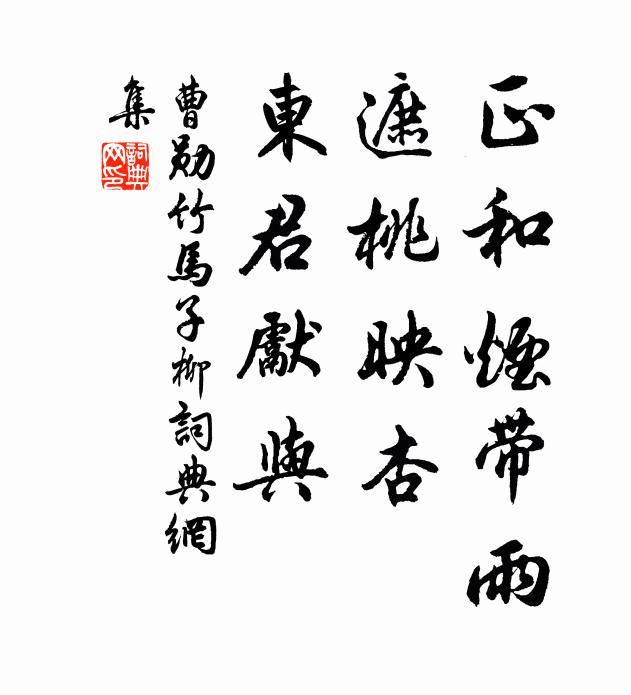 正和煙帶雨
遮桃映杏
東君獻與
曹勛竹馬子柳詞典網
集
詞典
网印